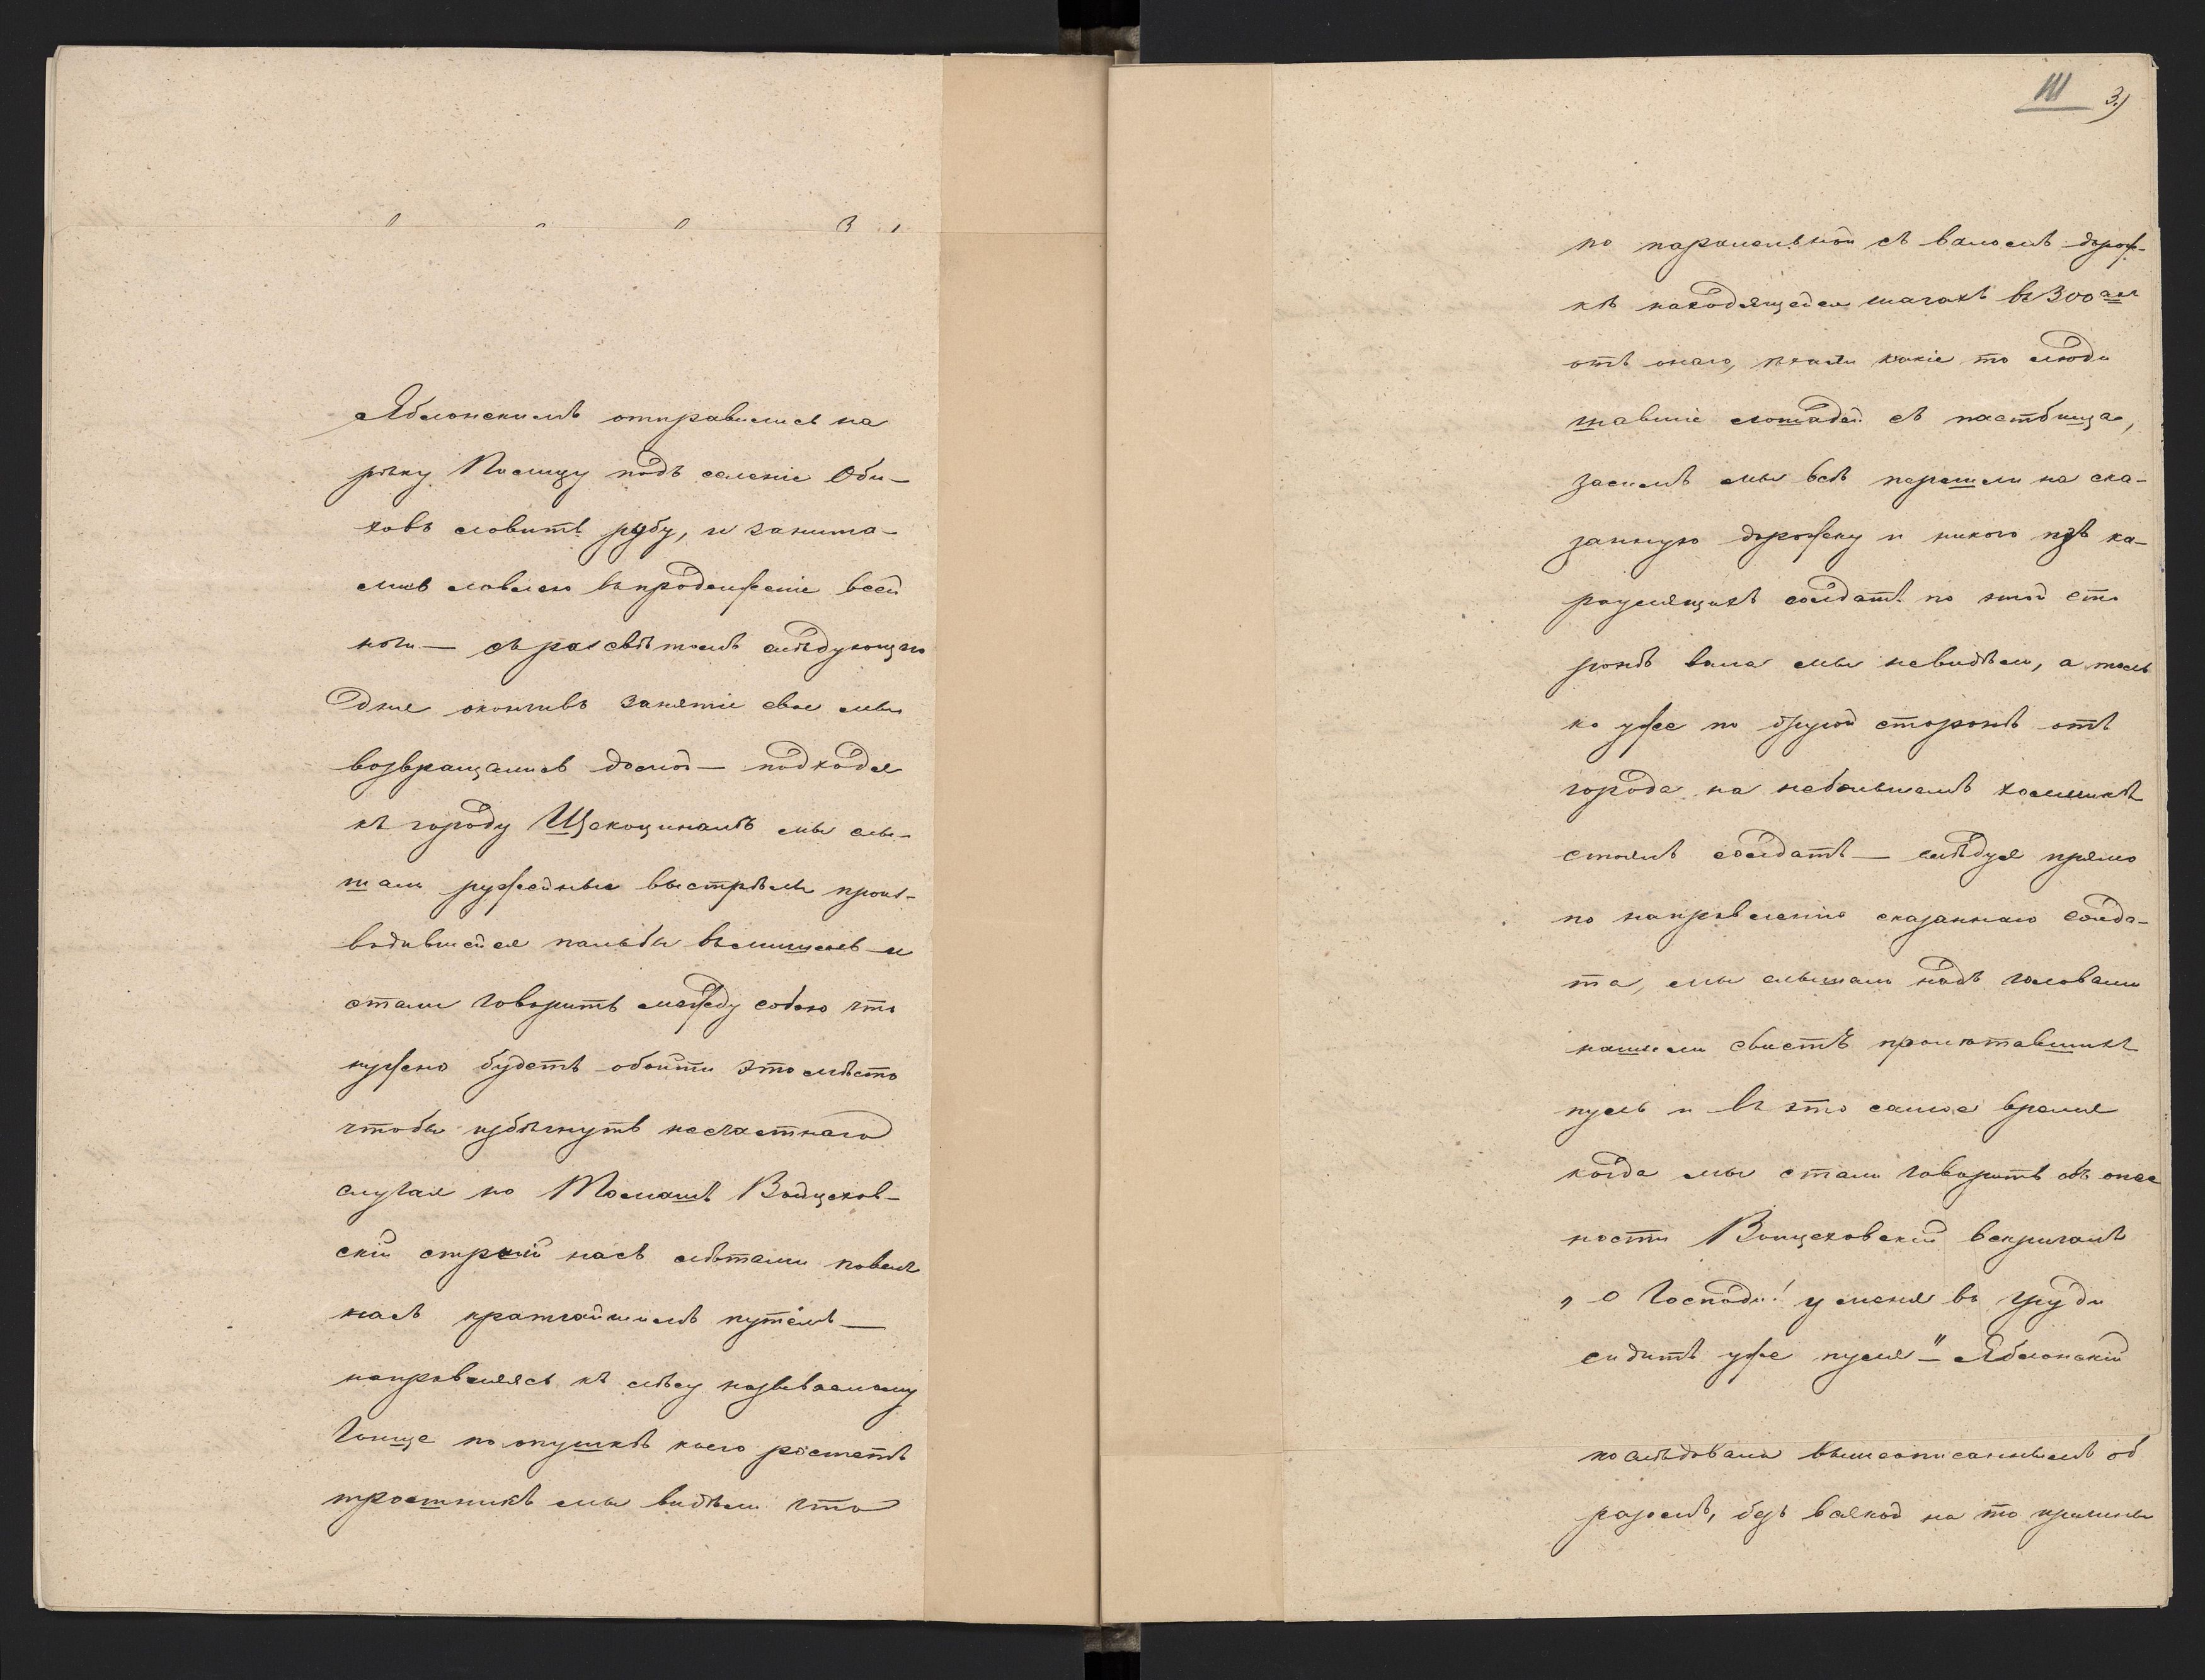 Яблонскимъ отправились на
рѣку Пилицу подъ селеніе Оби-
ховъ ловить рыбу, и занима-
лись ловлею впродолженіе всей
ночи — съ разсвѣтомъ слѣдующаго
дня окончивъ занятіе свое мы
возвращались домой — подходя
къ городу Щекоцинамъ мы слы-
шали ружейные выстрѣлы произ-
водившейся пальбы вмишень и
стали говорить между собою что
нужно будетъ обойти это мѣсто
чтобы избѣгнуть несчастнаго
случая но Томашъ Войцехов-
скій стрший насъ лѣтами повелъ
насъ кратчайшимъ путёмъ —
направляясь къ лѣсу называемому
Гонще по опушкѣ коего ростетъ
тростникъ мы видѣли что
III 3.)
по паралельной съ валомъ дорож-
кѣ находящейся шагахъ въ 300
отъ онаго, гнали какіе то люди
шавшіе лошадей съ пастбища,
засимъ мы всѣ перешли на ска-
занную дорожку и никого изъ ка-
раулящихъ солдатъ по этой сто
ронѣ вала мы невидѣли, а толь
ко уже по другой сторонѣ отъ
города на небольшомъ холмикѣ
стоялъ солдатъ — слѣдуя прямо
по направленію сказаннаго солда-
та, мы слышали надъ головами
нашими свистъ пролѣтавшихъ
пуль и въ это самое время
когда мы стали говорить объ опас
ности Войцеховскій вскричалъ
„О Господи! у меня въ груди
сидитъ уже пуля" — Яблонскій
послѣдовали вышеописаннымъ об
разомъ, безъ всякой на то причины